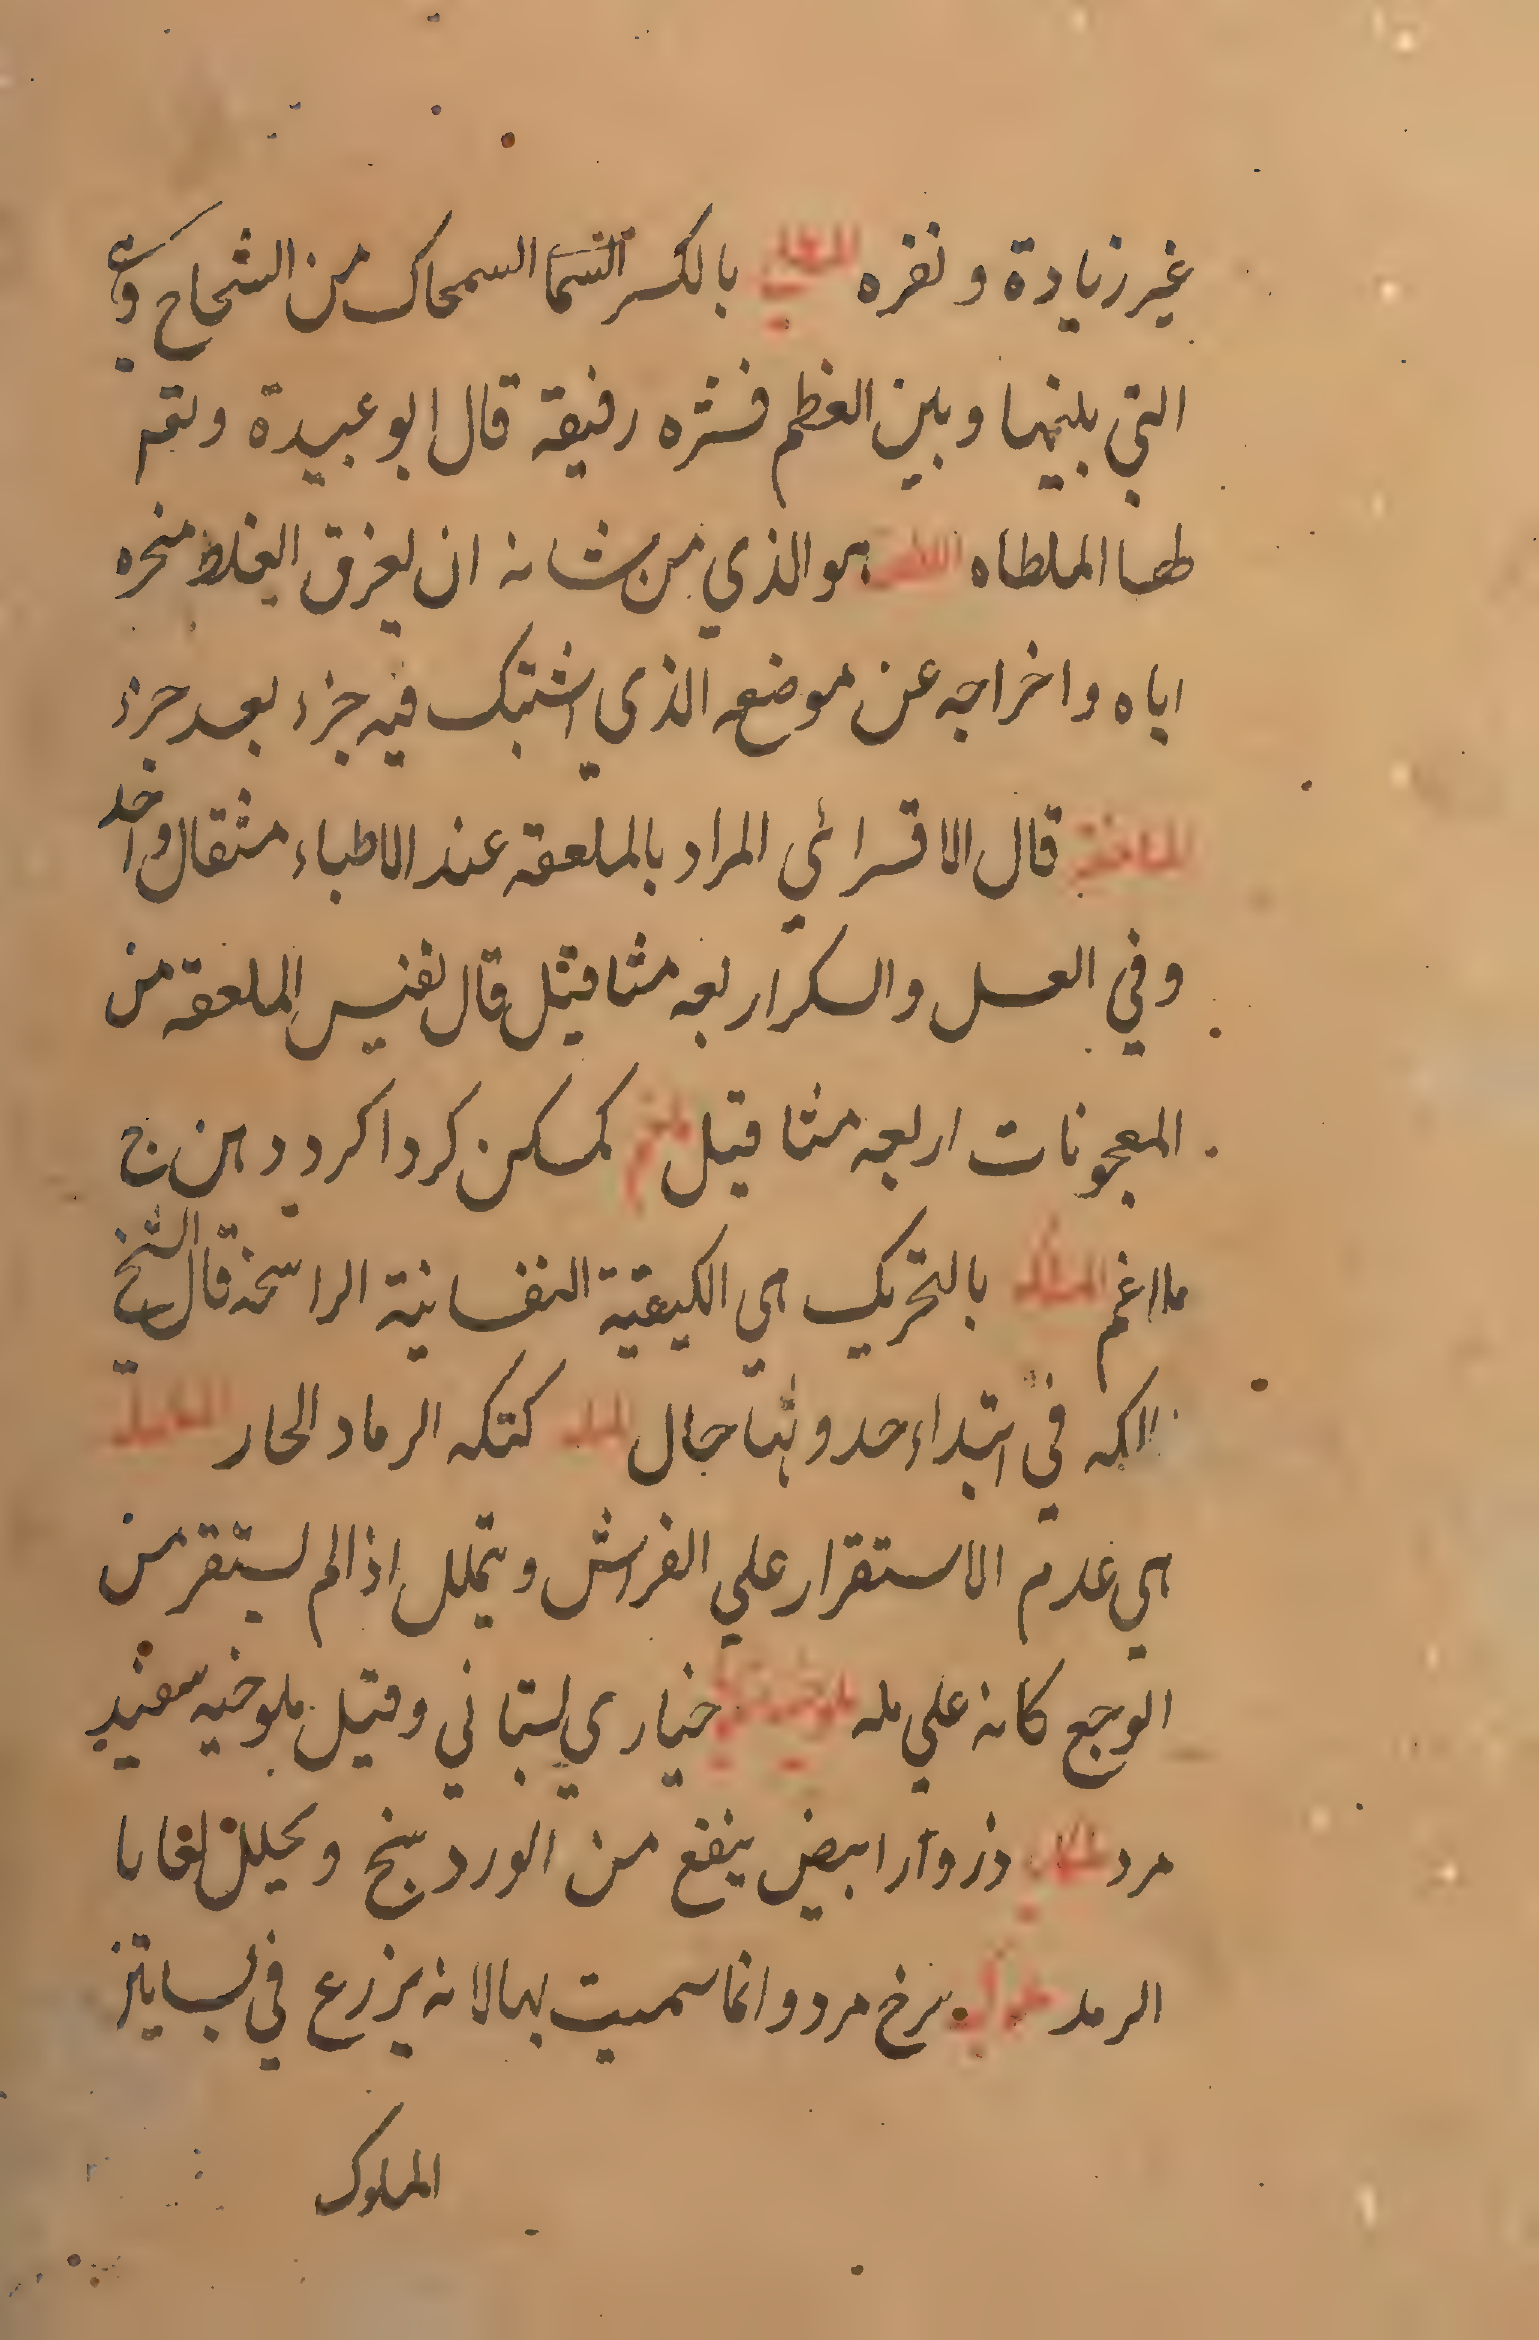 غير زيادة ونفره الملطي بالكسر السمحاك من الشجاح وهي
التي بلينها وبلين العظم قشره رقيقة قال ابو عبيدة ولقم
طها الملطاه هو الذي من شانه ان يعزق الغلط منحره
اياه واخراجه عن موضعه الذي اشتبك فيه جزء بعد جزء
الملعقة قال الاقسرائي المراد بالملعقه عند الاطباء مثقال واحد
وفي العسل والسكر اربعه مثاقيل قال نفيس الملعقه من
المعجونات اربعه مثاقيل ملحم كمسكن كردا كردد هن ج
ملاغم الملكه بالتحريك هي الكيفية النفسانية الراسخة قال الشيخ
الكه في ابتداء حدوثها حال المله كتكه الرماد الحار المليله
هي عدم الاستقرار علي الفراش ويتملل اذا لم يستقر من
الوجع كانه علي مله ملوخيه خياري بستاني وقيل ملوخيه سفيد
مرد ذزوار ابيض ينفع من الوردينج ويحلل لغايا
الرمد ملوكيه سرخ مرد وانما سميت بها لانه يزرع في بساتين
الملوك